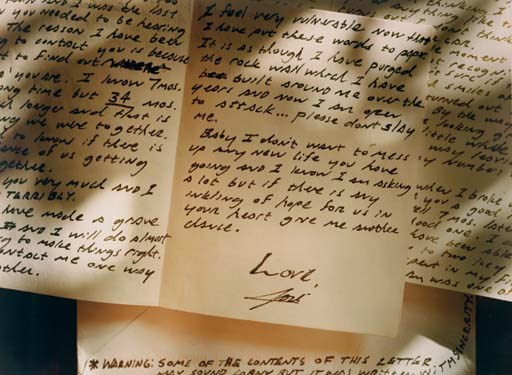 and I was the last
you needed to be hearing
The reason I have been
to contact you is because
to find out WHERE
you are. I know 7 mos.
long time but 34 mos.
longer and that is
we were together.
to know if there is
of us getting
together.
you very much and I
TERRIBLY.
have made a grave
and I will do almost
to make things right.
contact me one way
other.
I feel very vulnerable now that
I have put these words to paper.
It is as though I have purged
the rock wall which I have
built around me over the
years and now I am open
to attack... please don't slay
me.
Baby I don't want to mess
up any new life you have
going and I know I am asking
a lot but if there is any
inkling of hope for us in
your heart give me another
chance.
Love,
thinking
king like
think
moment
recogni
sure
smiles
turned out
By the way
looking
little while
leav
number
when I broke
you a good
all 7 mos. later
good one. I
have been able
to two
spent in my
was one
SINCERITY
(* WARNING: SOME OF THE CONTENTS OF THIS LETTER
MAY SOUND CORNY BUT IT WAS WRITTEN